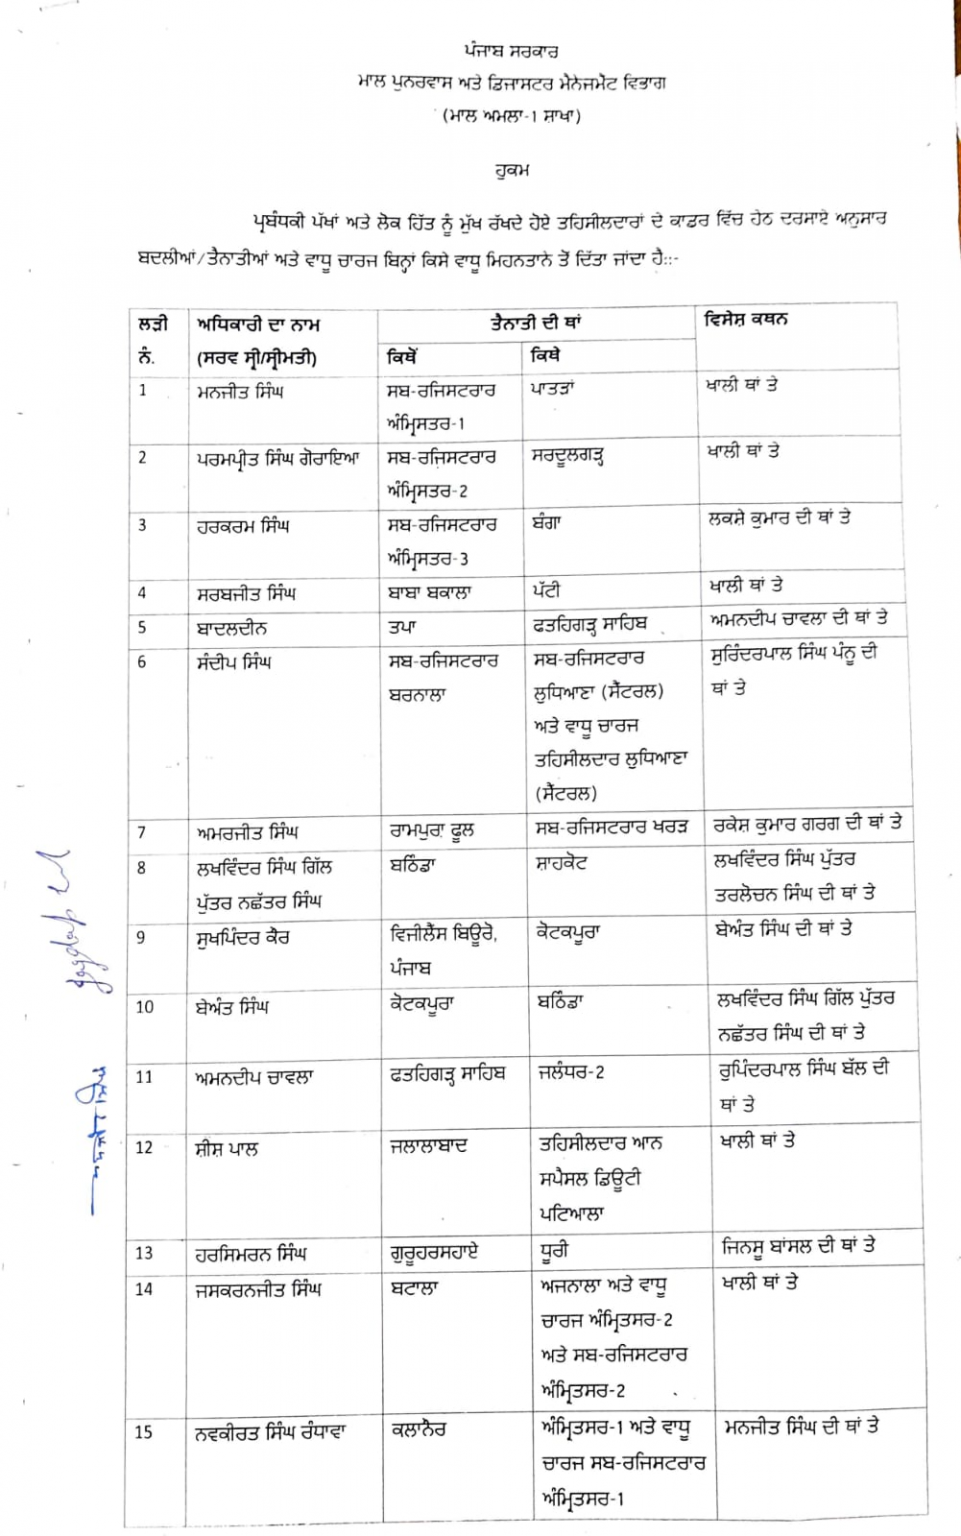 ਪੰਜਾਬ ਸਰਕਾਰ
ਮਾਲ ਪੁਨਰਵਾਸ ਅਤੇ ਡਿਜਾਸਟਰ ਮੈਨੇਜਮੈਂਟ ਵਿਭਾਗ
(ਮਾਲ ਅਮਲਾ-1 ਸ਼ਾਖਾ)
ਹੁਕਮ
ਪ੍ਰਬੰਧਕੀ ਪੱਖਾਂ ਅਤੇ ਲੋਕ ਹਿੱਤ ਨੂੰ ਮੁੱਖ ਰੱਖਦੇ ਹੋਏ ਤਹਿਸੀਲਦਾਰਾਂ ਦੇ ਕਾਡਰ ਵਿੱਚ ਹੇਠ ਦਰਸਾਏ ਅਨੁਸਾਰ
ਬਦਲੀਆਂ/ਤੈਨਾਤੀਆਂ ਅਤੇ ਵਾਧੂ ਚਾਰਜ ਬਿਨ੍ਹਾਂ ਕਿਸੇ ਵਾਧੂ ਮਿਹਨਤਾਨੇ ਤੋਂ ਦਿੱਤਾ ਜਾਂਦਾ ਹੈ::-
ਲੜੀ ਅਧਿਕਾਰੀ ਦਾ ਨਾਮ ਤੈਨਾਤੀ ਦੀ ਥਾਂ ਵਿਸੇਸ਼ ਕਥਨ
ਨੰ. (ਸਰਵ ਸ੍ਰੀ/ਸ੍ਰੀਮਤੀ) ਕਿਥੋਂ ਕਿਥੇ
1 ਮਨਜੀਤ ਸਿੰਘ ਸਬ-ਰਜਿਸਟਰਾਰ ਪਾਤੜਾਂ ਖਾਲੀ ਥਾਂ ਤੇ
ਅੰਮ੍ਰਿਸਤਰ-1
2 ਪਰਮਪ੍ਰੀਤ ਸਿੰਘ ਗੋਰਾਇਆ ਸਬ-ਰਜਿਸਟਰਾਰ ਸਰਦੂਲਗੜ੍ਹ ਖਾਲੀ ਥਾਂ ਤੇ
ਅੰਮ੍ਰਿਸਤਰ-2
3 ਹਰਕਰਮ ਸਿੰਘ ਸਬ-ਰਜਿਸਟਰਾਰ ਬੰਗਾ ਲਕਸ਼ੇ ਕੁਮਾਰ ਦੀ ਥਾਂ ਤੇ
ਅੰਮ੍ਰਿਸਤਰ-3
4 ਸਰਬਜੀਤ ਸਿੰਘ ਬਾਬਾ ਬਕਾਲਾ ਪੱਟੀ ਖਾਲੀ ਥਾਂ ਤੇ
5 ਬਾਦਲਦੀਨ ਤਪਾ ਫਤਹਿਗੜ੍ਹ ਸਾਹਿਬ ਅਮਨਦੀਪ ਚਾਵਲਾ ਦੀ ਥਾਂ ਤੇ
6 ਸੰਦੀਪ ਸਿੰਘ ਸਬ-ਰਜਿਸਟਰਾਰ ਸਬ-ਰਜਿਸਟਰਾਰ ਸੁਰਿੰਦਰਪਾਲ ਸਿੰਘ ਪੰਨੂ ਦੀ
ਬਰਨਾਲਾ ਲੁਧਿਆਣਾ (ਸੈਂਟਰਲ) ਥਾਂ ਤੇ
ਅਤੇ ਵਾਧੂ ਚਾਰਜ
ਤਹਿਸੀਲਦਾਰ ਲੁਧਿਆਣਾ
(ਸੈਂਟਰਲ)
7 ਅਮਰਜੀਤ ਸਿੰਘ ਰਾਮਪੁਰਾ ਫੂਲ ਸਬ-ਰਜਿਸਟਰਾਰ ਖਰੜ ਰਕੇਸ਼ ਕੁਮਾਰ ਗਰਗ ਦੀ ਥਾਂ ਤੇ
8 ਲਖਵਿੰਦਰ ਸਿੰਘ ਗਿੱਲ ਬਠਿੰਡਾ ਸ਼ਾਹਕੋਟ ਲਖਵਿੰਦਰ ਸਿੰਘ ਪੁੱਤਰ
ਪੁੱਤਰ ਨਛੱਤਰ ਸਿੰਘ ਤਰਲੋਚਨ ਸਿੰਘ ਦੀ ਥਾਂ ਤੇ
9 ਸੁਖਪਿੰਦਰ ਕੌਰ ਵਿਜੀਲੈਂਸ ਬਿਊਰੋ, ਕੋਟਕਪੂਰਾ ਬੇਅੰਤ ਸਿੰਘ ਦੀ ਥਾਂ ਤੇ
ਪੰਜਾਬ
10 ਬੇਅੰਤ ਸਿੰਘ ਕੋਟਕਪੂਰਾ ਬਠਿੰਡਾ ਲਖਵਿੰਦਰ ਸਿੰਘ ਗਿੱਲ ਪੁੱਤਰ
ਨਛੱਤਰ ਸਿੰਘ ਦੀ ਥਾਂ ਤੇ
11 ਅਮਨਦੀਪ ਚਾਵਲਾ ਫਤਹਿਗੜ੍ਹ ਸਾਹਿਬ ਜਲੰਧਰ-2 ਰੁਪਿੰਦਰਪਾਲ ਸਿੰਘ ਬੱਲ ਦੀ
ਥਾਂ ਤੇ
12 ਸ਼ੀਸ਼ ਪਾਲ ਜਲਾਲਾਬਾਦ ਤਹਿਸੀਲਦਾਰ ਆਨ ਖਾਲੀ ਥਾਂ ਤੇ
ਸਪੈਸਲ ਡਿਊਟੀ
ਪਟਿਆਲਾ
13 ਹਰਸਿਮਰਨ ਸਿੰਘ ਗੁਰੂਹਰਸਹਾਏ ਧੂਰੀ ਜਿਨਸੂ ਬਾਂਸਲ ਦੀ ਥਾਂ ਤੇ
14 ਜਸਕਰਨਜੀਤ ਸਿੰਘ ਬਟਾਲਾ ਅਜਨਾਲਾ ਅਤੇ ਵਾਧੂ ਖਾਲੀ ਥਾਂ ਤੇ
ਚਾਰਜ ਅੰਮ੍ਰਿਤਸਰ-2
ਅਤੇ ਸਬ-ਰਜਿਸਟਰਾਰ
ਅੰਮ੍ਰਿਤਸਰ-2
15 ਨਵਕੀਰਤ ਸਿੰਘ ਰੰਧਾਵਾ ਕਲਾਨੌਰ ਅੰਮ੍ਰਿਤਸਰ-1 ਅਤੇ ਵਾਧੂ ਮਨਜੀਤ ਸਿੰਘ ਦੀ ਥਾਂ ਤੇ
ਚਾਰਜ ਸਬ-ਰਜਿਸਟਰਾਰ
ਅੰਮ੍ਰਿਤਸਰ-1